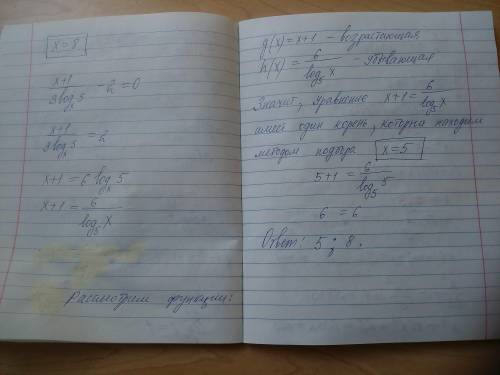 x = 8
x+1 / 3log_x 5 - 2 = 0
x+1 / 3log_x 5 = 2
x+1 = 6 log_x 5
x+1 = 6 / log_5 x
Рассмотрим функции:
g(x) = x+1 – возрастающая
h(x) = 6 / log_5 x – убывающая
Значит, уравнение x+1 = 6 / log_5 x
имеет один корень, который находим
методом подбора x=5
5+1 = 6 / log_5 5
6 = 6
Ответ: 5; 8.